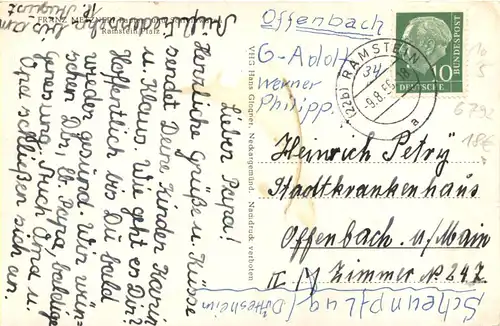 FRANZ METZNER
Ramstein Pfalz
Lieber Papa!
Herzliche Grüße u. Küsse
sendet Deine Kinder Karin
u. Klaus. Wie geht es Dir?
Hoffentlich bis Du bald
wieder gesund. Wir wün-
schen Dir, lb. Papa, baldige
Genesung. Auch Oma u.
Opa schließen sich an.
VHG Hans Glogner, Neckargemünd Nachdruck verboten
Offenbach
G-Adolf
Werner
Philipp
34
(22b) RAMSTEIN
-9.8.55
a
10
DEUTSCHE
BUNDESPOST
10
5
6792
18€
Heinrich Petry
Stadtkrankenhaus
Offenbach a/Main
II / Zimmer № 247